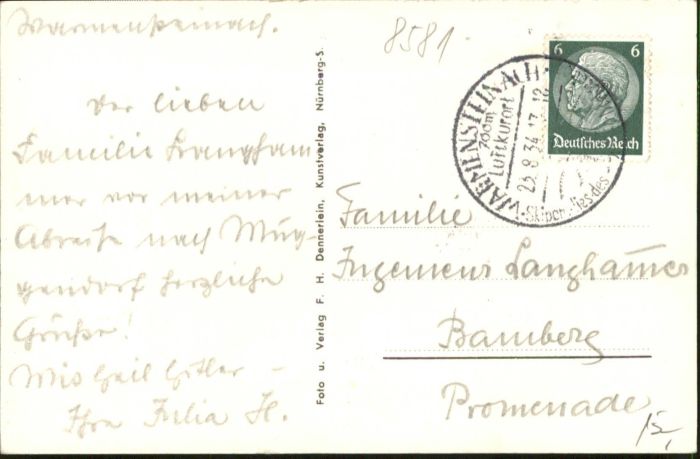 Warmensteinach.
Der lieben
Familie Langham
mer vor meiner
Abreise nach Mug-
gendorf herzliche
Grüße!
Mit Heil Hitler –
Ihre Julia H.
Foto u. Verlag F. H. Dennerlein, Kunstverlag, Nürnberg-S.
8581
6 6
Deutsches Reich
WARMENSTEINACH
700m
Luftkurort
23.8.34.17-18
Skipar des
Familie
Ingenieur Langhamer
Bamberg
Promenade
15,